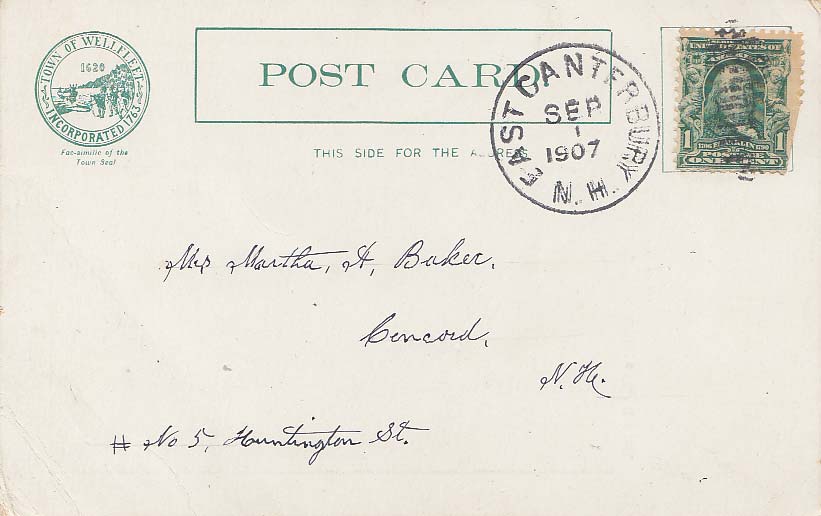 TOWN OF WELLFLEET
1620
INCORPORATED 1763
Fac-simile of the
Town Seal
POST CARD
THIS SIDE FOR THE ADDRESS
EAST CANTERBURY
SEP
1
1907
N. H.
UNITED STATES OF
AMERICA
1706 FRANKLIN 1790
POSTAGE
1 ONE CENT 1
Mrs Martha, A, Baker.
Concord,
N.H.
# No 5, Huntington St.